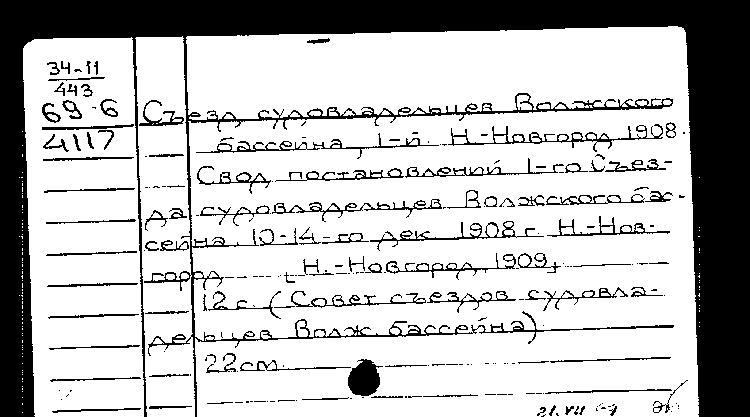 34-11
443
69-6
4117
Съезд судовладельцев Волжского
бассейна, 1-й. Н.-Новгород 1908.
Свод постановлений 1-го Съез-
да судовладельцев Волжского бас-
сейна. 10-14-го дек 1908 г. Н.-Нов-
город [Н.-Новгород, 1909,
12 с. (Совет съездов судовла-
дельцев Волж. бассейна)
22 см.
21.VII